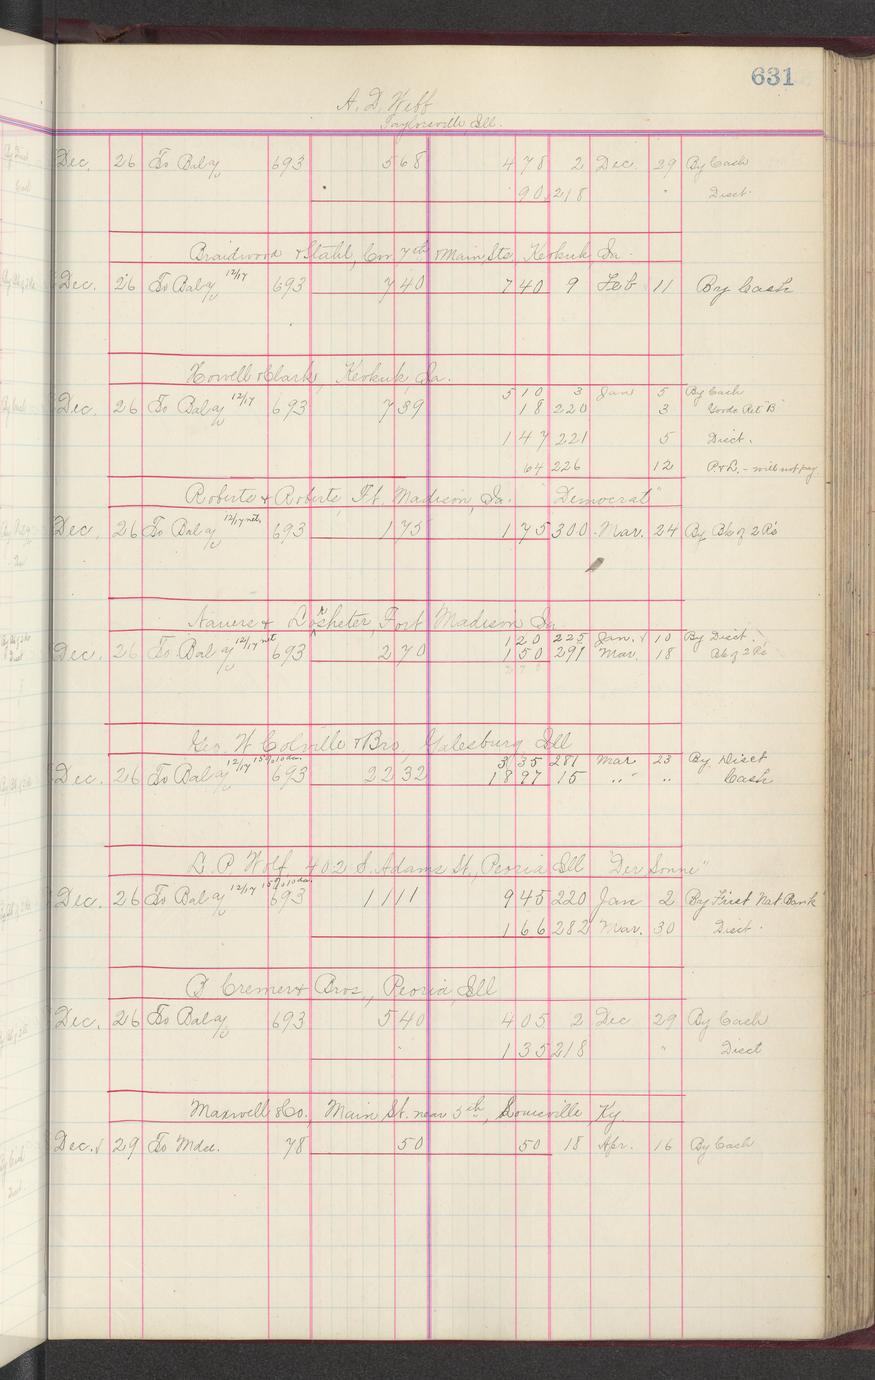 631
A. D. Webb
Taylorville, Ill.
Dec. 26 To Bal a/c 693 568 478 2 Dec. 29 By Cash
90 218 " Disct.
Braidwood & Stahl, Cor. 7th & Main Sts, Keokuk, Ia.
Dec. 26 To Bal a/c 12/17 693 740 740 9 Feb 11 By Cash
Howell & Clark, Keokuk, Ia.
510 3 Jan 5 By Cash
Dec. 26 To Bal a/c 12/17 693 739 18 220 3 Goods Ret "B"
147 221 5 Disct.
64 226 12 P. & L. - will not pay
Roberts & Roberts, Ft. Madison, Ia. "Democrat"
Dec. 26 To Bal a/c 12/17 net. 693 175 175 300 Mar. 24 By Bk of 2 R's
Nauers & Fort Madison Ia
120 225 Jan. 10 By Disct.
Dec. 26 To Bal a/c 12/17 net 693 270 150 291 Mar. 18 Bk of 2 R's
Geo. W. Colville & Bro, Galesburg, Ill
335 281 Mar 23 By Disct
Dec. 26 To Bal a/c 12/17 15% 10 da. 693 2232 1897 15 " " Cash
L. P. Wolf, 402 S. Adams St., Peoria Ill "Der Sonne"
Dec. 26 To Bal a/c 12/17 15% 10 da. 693 1111 945 220 Jan 2 By First Nat Bank
166 282 Mar. 30 Disct.
B Cremer & Bros., Peoria, Ill
Dec. 26 To Bal a/c 693 540 405 2 Dec 29 By Cash
135 218 " Disct
Maxwell & Co., Main St. near 5th, Louisville Ky.
Dec. 29 To Mdse. 78 50 50 18 Apr. 16 By Cash